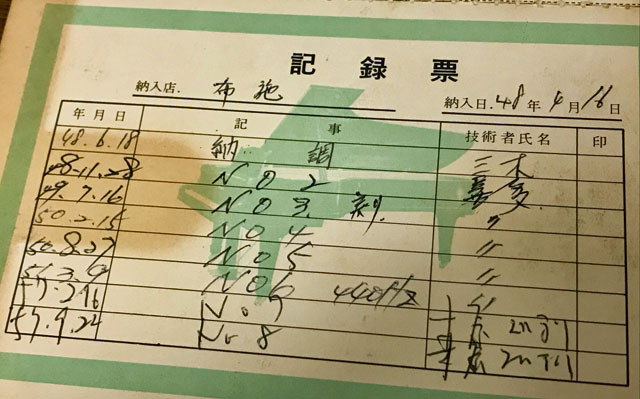 記録票
納入店. 布施 納入日. 48年4月16日
年月日 記事 技術者氏名 印
48.6.18 納 調 三木
48-11-28 NO2 喜多
49.7.16 NO3 〃
50.2.15 NO4 〃
50.8.27 NO5 〃
51.3.9 NO6 440Hz 〃
57.2.16 No.7
57.9.24 No 8